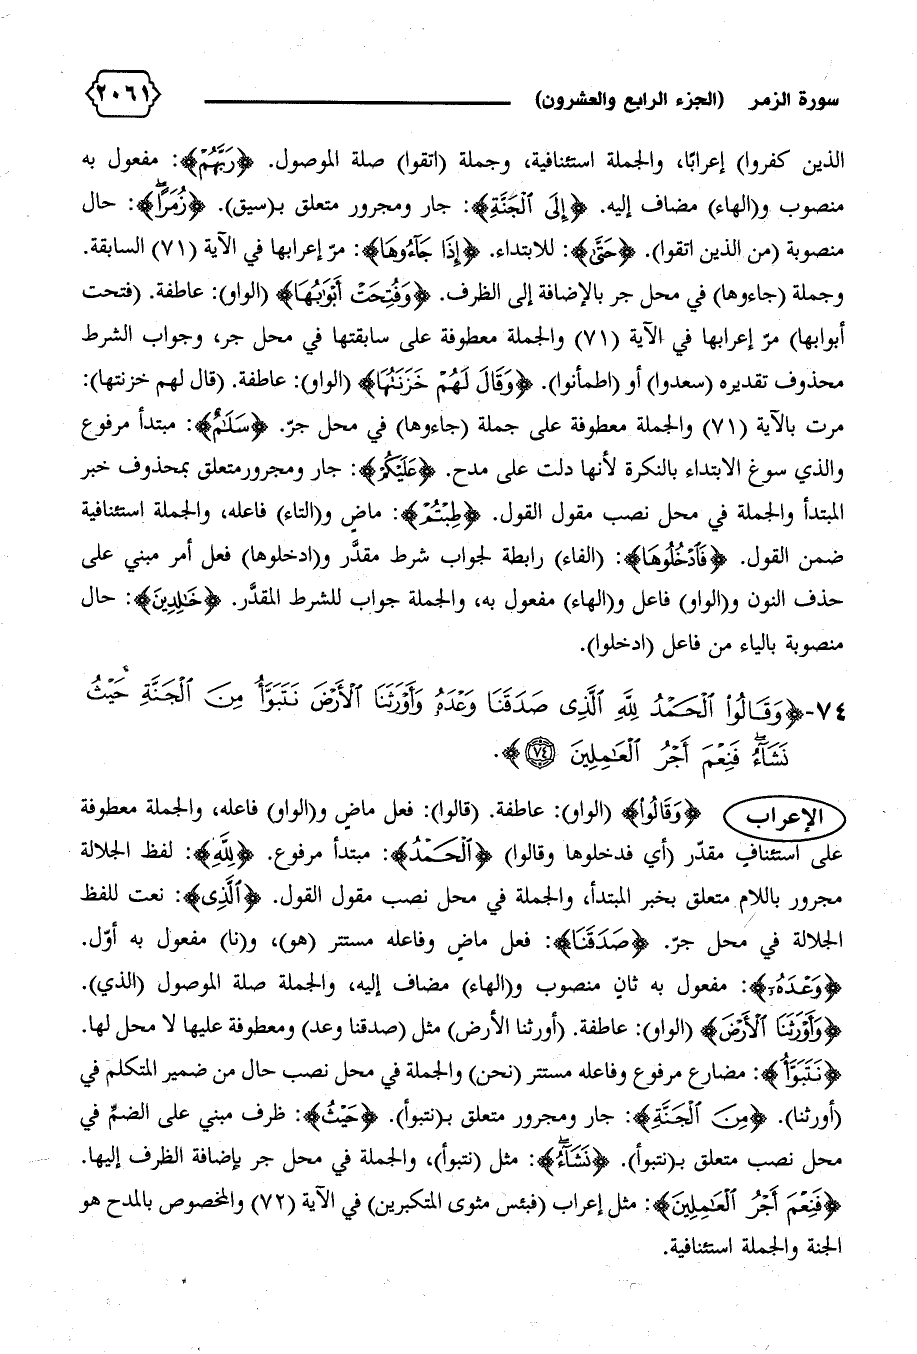 سورة الزمر (الجزء الرابع والعشرون) ٢٠٦١
الذين كفروا) إعرابًا، والجملة استئنافية، وجملة (اتقوا) صلة الموصول. ﴿رَبَّهُمْ﴾: مفعول به
منصوب و(الهاء) مضاف إليه. ﴿إِلَى ٱلْجَنَّةِ﴾: جار ومجرور متعلق بـ(سيق). ﴿زُمَرًاۖ﴾: حال
منصوبة (من الذين اتقوا). ﴿حَتَّىٰ﴾: للابتداء. ﴿إِذَا جَآءُوهَا﴾: مرّ إعرابها في الآية (٧١) السابقة.
وجملة (جاءوها) في محل جر بالإضافة إلى الظرف. ﴿وَفُتِحَتْ أَبْوَٰبُهَا﴾ (الواو): عاطفة. (فتحت
أبوابها) مرّ إعرابها في الآية (٧١) والجملة معطوفة على سابقتها في محل جر، وجواب الشرط
محذوف تقديره (سعدوا) أو (اطمأنوا). ﴿وَقَالَ لَهُمْ خَزَنَتُهَا﴾ (الواو): عاطفة. (قال لهم خزنتها):
مرت بالآية (٧١) والجملة معطوفة على جملة (جاءوها) في محل جرّ. ﴿سَلَٰمٌ﴾: مبتدأ مرفوع
والذي سوغ الابتداء بالنكرة لأنها دلت على مدح. ﴿عَلَيْكُمْ﴾: جار ومجرورمتعلق بمحذوف خبر
المبتدأ والجملة في محل نصب مقول القول. ﴿طِبْتُمْ﴾: ماضٍ و(التاء) فاعله، والجملة استئنافية
ضمن القول. ﴿فَٱدْخُلُوهَا﴾: (الفاء) رابطة لجواب شرط مقدَّر و(ادخلوها) فعل أمر مبني على
حذف النون و(الواو) فاعل و(الهاء) مفعول به، والجملة جواب للشرط المقدَّر. ﴿خَٰلِدِينَ﴾: حال
منصوبة بالياء من فاعل (ادخلوا).
٧٤-﴿وَقَالُوا۟ ٱلْحَمْدُ لِلَّهِ ٱلَّذِى صَدَقَنَا وَعْدَهُۥ وَأَوْرَثَنَا ٱلْأَرْضَ نَتَبَوَّأُ مِنَ ٱلْجَنَّةِ حَيْثُ
نَشَآءُۖ فَنِعْمَ أَجْرُ ٱلْعَٰمِلِينَ ٧٤﴾.
الإعراب ﴿وَقَالُوا۟﴾ (الواو): عاطفة. (قالوا): فعل ماضٍ و(الواو) فاعله، والجملة معطوفة
على استئنافٍ مقدّر (أي فدخلوها وقالوا) ﴿ٱلْحَمْدُ﴾: مبتدأ مرفوع. ﴿لِلَّهِ﴾: لفظ الجلالة
مجرور باللام متعلق بخبر المبتدأ، والجملة في محل نصب مقول القول. ﴿ٱلَّذِى﴾: نعت للفظ
الجلالة في محل جرّ. ﴿صَدَقَنَا﴾: فعل ماضٍ وفاعله مستتر (هو)، و(نا) مفعول به أوّل.
﴿وَعْدَهُۥ﴾: مفعول به ثانٍ منصوب و(الهاء) مضاف إليه، والجملة صلة الموصول (الذي).
﴿وَأَوْرَثَنَا ٱلْأَرْضَ﴾ (الواو): عاطفة. (أورثنا الأرض) مثل (صدقنا وعد) ومعطوفة عليها لا محل لها.
﴿نَتَبَوَّأُ﴾: مضارع مرفوع وفاعله مستتر (نحن) والجملة في محل نصب حال من ضمير المتكلم في
(أورثنا). ﴿مِنَ ٱلْجَنَّةِ﴾: جار ومجرور متعلق بـ(نتبوأ). ﴿حَيْثُ﴾: ظرف مبني على الضمِّ في
محل نصب متعلق بـ(نتبوأ). ﴿نَشَآءُۖ﴾: مثل (نتبوأ)، والجملة في محل جر بإضافة الظرف إليها.
﴿فَنِعْمَ أَجْرُ ٱلْعَٰمِلِينَ﴾: مثل إعراب (فبئس مثوى المتكبرين) في الآية (٧٢) والمخصوص بالمدح هو
الجنة والجملة استئنافية.